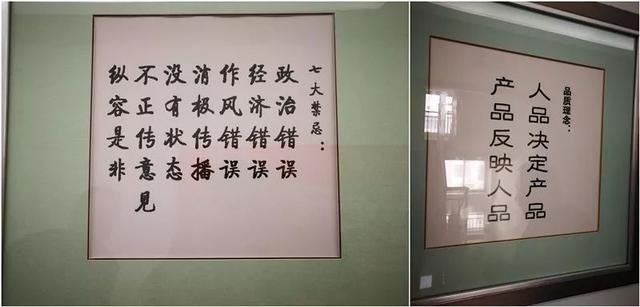 七大禁忌：
政治错误
经济错误
作风错误
消极传播
没有状态
不正传意見
纵容是非
品质理念：
人品决定产品
产品反映人品